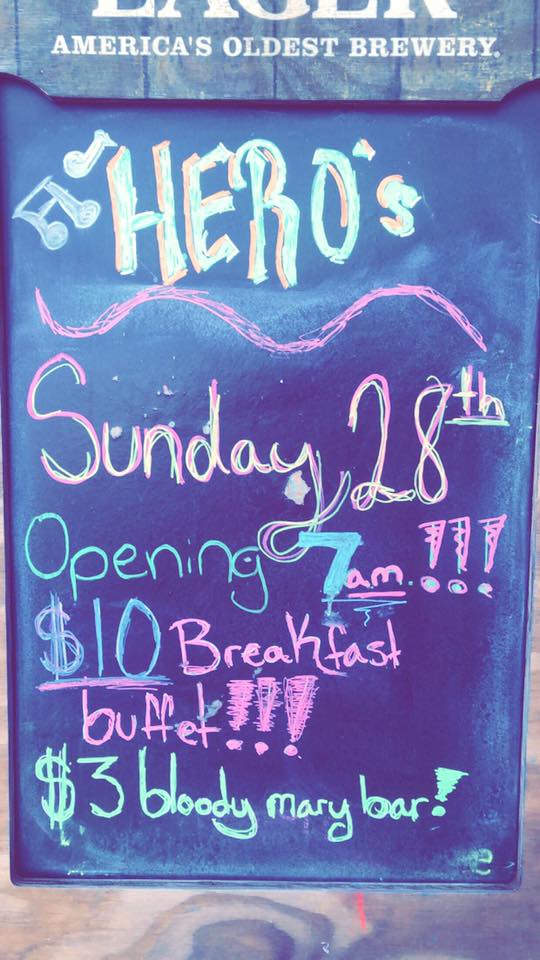 LAGER
AMERICA'S OLDEST BREWERY.
HERO's
Sunday 28th
Opening 7am.!!!
$10 Breakfast
buffet!!!
$3 bloody mary bar!
e